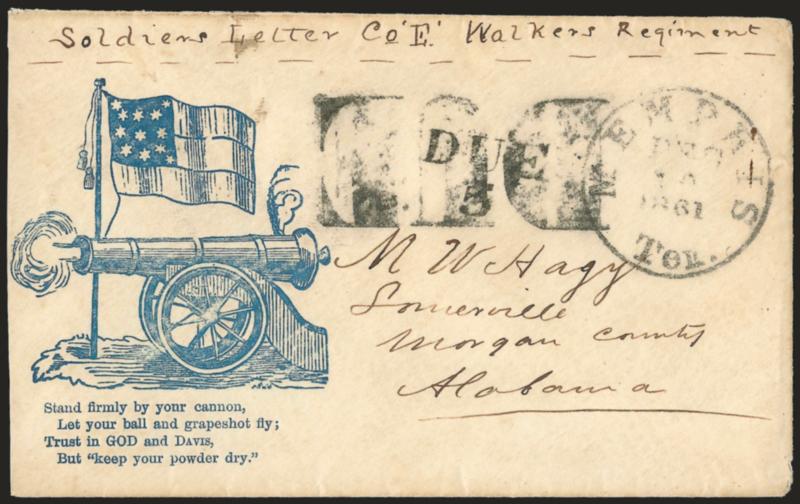 Soldiers Letter Co "E" Walkers Regiment
DUE
5
MEMPHIS
DEC
1861
Ten.
M W Hagy
Somerville
Morgan County
Alabama
Stand firmly by your cannon,
Let your ball and grapeshot fly;
Trust in GOD and DAVIS,
But "keep your powder dry."